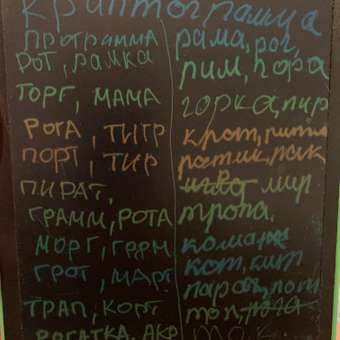 криптограмма
программа
рот, рамка
торг, мама
рога, тигр
порт, тир
пират,
грамм, рота
морг, грам
грот, март
трап, корт
рогатка, акр
рама, рог,
рим, гора
горка, пир
крот, ритм
ротик, рак
мир
тропа.
комар
кот, кит
парог, пот
ток,